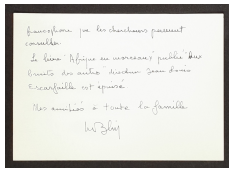 francophone que les chercheurs peuvent
consulter.
Le livre "Afrique en morceaux" publié aux
des autres direction Jean Louis
Escarfaille est épuisé
Mes amitiés à toute la famille